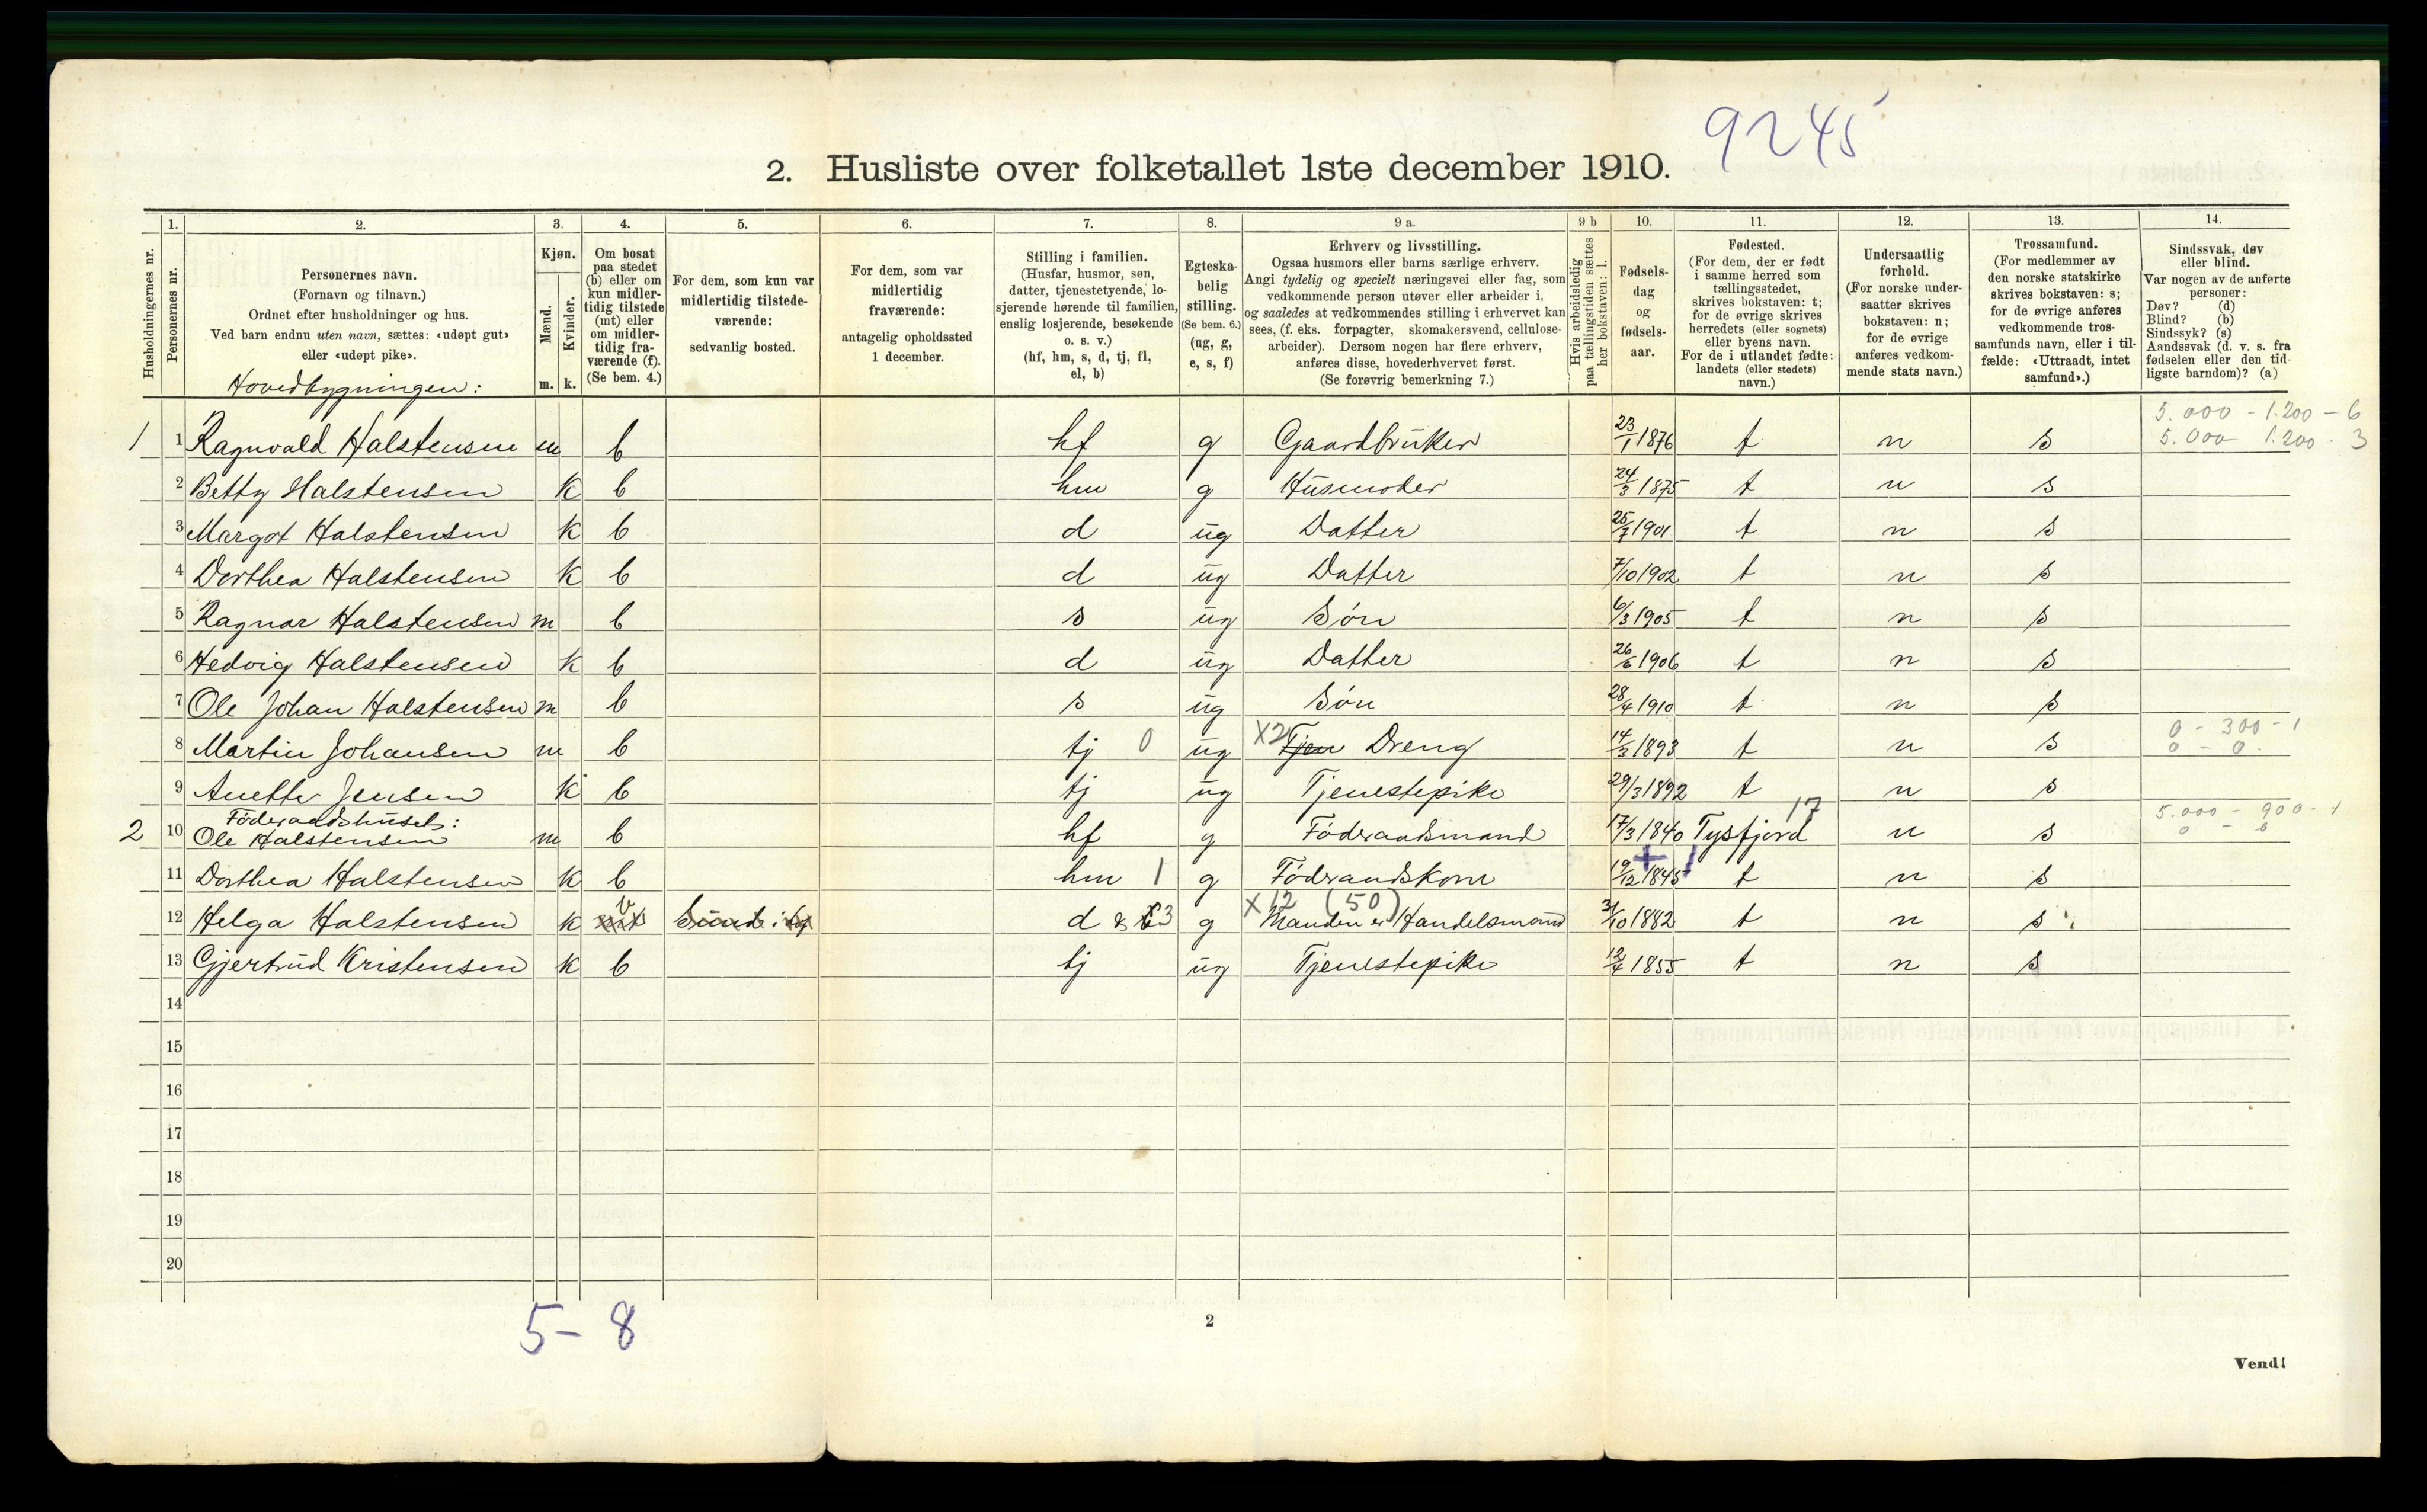 9245
2. Husliste over folketallet 1ste december 1910.
1. 2. 3. 4. 5. 6. 7. 8. 9 a. 9 b 10. 11. 12. 13. 14.
Husholdningernes nr.
Personernes nr.
Personernes navn.
(Fornavn og tilnavn.)
Ordnet efter husholdninger og hus.
Ved barn endnu uten navn, sættes: «udøpt gut»
eller «udøpt pike».
Hovedbygningen:
Kjøn.
Mænd.
Kvinder.
m. k.
Om bosat
paa stedet
(b) eller om
kun midler-
tidig tilstede
(mt) eller
om midler-
tidig fra-
værende (f).
(Se bem. 4.)
For dem, som kun var
midlertidig tilstede-
værende:
sedvanlig bosted.
For dem, som var
midlertidig
fraværende:
antagelig opholdssted
1 december.
Stilling i familien.
(Husfar, husmor, søn,
datter, tjenestetyende, lo-
sjerende hørende til familien,
enslig losjerende, besøkende
o. s. v.)
(hf, hm, s, d, tj, fl,
el, b)
Egteska-
belig
stilling.
(Se bem. 6.)
(ug, g,
e, s, f)
Erhverv og livsstilling.
Ogsaa husmors eller barns særlige erhverv.
Angi tydelig og specielt næringsvei eller fag, som
vedkommende person utøver eller arbeider i,
og saaledes at vedkommendes stilling i erhvervet kan
sees, (f. eks. forpagter, skomakersvend, cellulose-
arbeider). Dersom nogen har flere erhverv,
anføres disse, hovederhvervet først.
(Se forøvrig bemerkning 7.)
Hvis arbeidsledig
paa tællingstiden sættes
her bokstaven: l.
Fødsels-
dag
og
fødsels-
aar.
Fødested.
(For dem, der er født
i samme herred som
tællingsstedet,
skrives bokstaven: t;
for de øvrige skrives
herredets (eller sognets)
eller byens navn.
For de i utlandet fødte:
landets (eller stedets)
navn.)
Undersaatlig
forhold.
(For norske under-
saatter skrives
bokstaven: n;
for de øvrige
anføres vedkom-
mende stats navn.)
Trossamfund.
(For medlemmer av
den norske statskirke
skrives bokstaven: s;
for de øvrige anføres
vedkommende tros-
samfunds navn, eller i til-
fælde: «Uttraadt, intet
samfund».)
Sindssvak, døv
eller blind.
Var nogen av de anførte
personer:
Døv? (d)
Blind? (b)
Sindssyk? (s)
Aandssvak (d. v. s. fra
fødselen eller den tid-
ligste barndom)? (a)
5.000 - 1.200 - 6
1 1 Ragnvald Halstensen m b hf g Gaardbruker 23/1 1876 t n s 5.000 1.200 . 3
2 Betty Halstensen k b hm g Husmoder 24/3 1875 t n s
3 Margot Halstensen k b d ug Datter 25/7 1901 t n s
4 Dorthea Halstensen k b d ug Datter 7/10 1902 t n s
5 Ragnar Halstensen m b s ug Søn 6/3 1905 t n s
6 Hedvig Halstensen k b d ug Datter 26/6 1906 t n s
7 Ole Johan Halstensen m b s ug Søn 28/4 1910 t n s
0 - 300 - 1
8 Martin Johansen m b tj 0 ug X2 Tjen Dreng 14/3 1893 t n s 0 - 0.
9 Anette Jensen k b tj ug Tjenestepike 29/3 1892 t n s
Föderaadshuset: 17 5.000 - 900 - 1
2 10 Ole Halstensen m b hf g Föderaadsmand 17/3 1840 Tysfjord n s 0 - 0
11 Dorthea Halstensen k b hm 1 g Föderaadskone 19/12 1845 t n s
X12 (50)
12 Helga Halstensen k b d 3 g Manden er Handelsmand 31/10 1882 t n s
13 Gjertrud Kristensen k b tj ug Tjenestepike 12/4 1855 t n s
14
15
16
17
18
19
20
5 - 8
2
Vend!